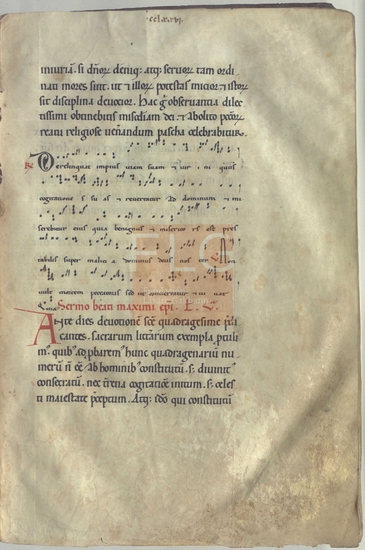 cclxxvi
iniuriā. si dn̄or deniq; atq; seruor tam ordi
nati mores sint. ut & illor potestas micior & istor
sit disciplina deuotior. Hac g̊ obseruantia dilec
tissimi obtinebitis misc̄diam dei. & abolito pccōr
reatu religiose uen̄andum pascha celebrabitur.
Derelinquat impius uiam suam & uir ini quus
cogitationes suas & reuertatur ad dominum & mi
serebitur eius quia benignus & misericors est pres
tabilis super malicia dominus deus noster
mortem peccatoris sed ut conuertatur & ui uat
Sermo beati maximi epi.
Ante dies deuotionē scē quadragesime p̄di
cantes. sacrarum litt̄arum exempla ptuli
mus quibus adpharem hunc quadragenariū nu
merū n̄ eē ab hominibus constitutū s; diuinitus
consecratū. nec t̄rena cogitatiōe initum. s; celes
ti maiestate p̄ceptum. Atq; ideo qui constitutū